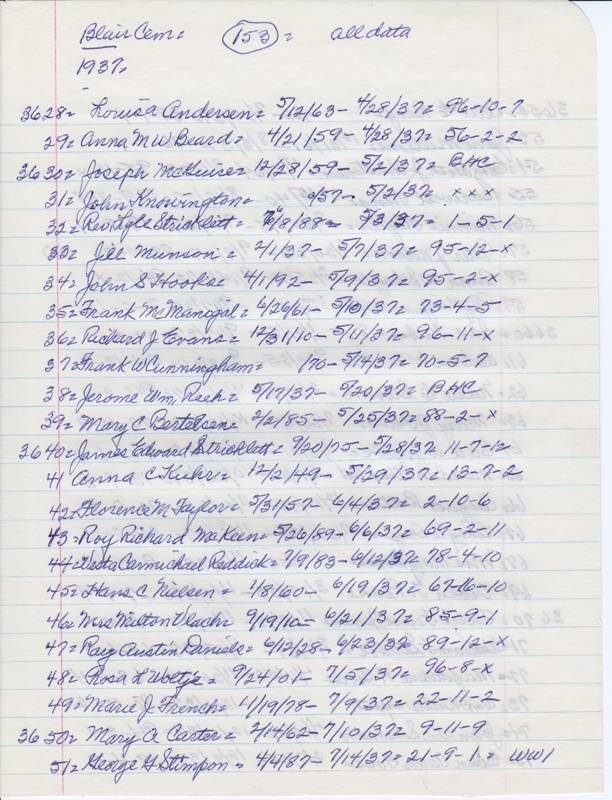 Blair Cem= 153= all data
1937=
3628= Louisa Andersen= 5/12/63- 4/28/37= 96-10-7
29= Anna M W Beard= 4/21/59- 4/28/37= 56-2-2
3630= Joseph McGuire= 12/28/59- 5/2/37= BHC
31= John Knowington= /57- 5/2/37= x x x
32= Rev Lyle Stricklett= 6/8/88= 5/3/37= 1-5-1
33= Jill Munson= 2/1/37- 5/7/37= 95-12-x
34= John S Hooks= 4/1/92- 5/9/37= 95-2-x
35= Frank McManigal= 6/26/61- 5/10/37= 73-4-5
36= Richard J Evans= 12/31/10- 5/11/37= 96-11-x
37= Frank W Cunningham= /76- 5/14/37= 70-5-7
38= Jerome Wm Rseh= 5/17/37- 5/20/37= BHC
39= Mary C Bertelsen= 2/2/85- 5/25/37= 88-2-x
3640= James Edward Stricklett= 9/20/75- 5/28/37= 11-7-12
41 Anna C Kuhr= 12/2/49- 5/29/37= 13-7-2
42= Florence M Taylor= 5/31/57- 6/4/37= 2-10-6
43= Roy Richard McKeen= 5/26/89- 6/6/37= 69-2-11
44= Vesta Carmichael Reddick= 7/9/83- 6/12/37= 78-4-10
45= Hans C Nielsen= 1/8/60- 6/19/37= 67-16-10
46= Mrs Milton Vlach= 9/19/10- 6/21/37= 85-9-1
47= Ray Austin Daniels= 6/12/28- 6/23/37= 89-12-x
48= Rosa L Woltje= 9/24/01- 7/5/37= 96-8-x
49= Marie J. French= 11/19/78- 7/9/37= 22-11-2
3650= Mary A Carter= 2/14/62- 7/10/37= 9-11-9
51= George G Stimpon= 4/4/87- 7/14/37= 21-9-1= WW1